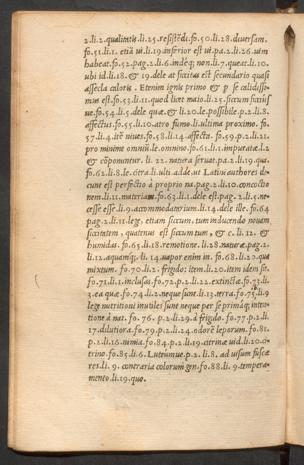 2.li.2.qualitatis.li.25.resistēdi.fo.50.li.28.diuersam.
fo.51.li.1. etiā ui.li.19.inferior est ui.pa.2.li.26.uim
habeat.fo.52.pag.2.li.6.indēq; non.li.7.queat.li.10.
ubi id.li.18.& 19.dele at siccitas est secundario quasi
assecla caloris. Etenim ignis primo & p se calidissi-
mus est.fo.53.li.11.quod siue maio.li.25.siccum siccius
ue.fo.54.li.5.dele quæ. & li.20.le.possibile.p.2.li.8.
affectus.fo.55.li.10.atro fumo.li.ultima proximo. fo.
57.li.4.itē niues.fo.58.li.14.affecta. fo.59.p.2.li.21.
pro minime omniū.le.omnino.fo.61.li.1.impurata.l.2
& cōponuntur. li. 22. natura seruat.pa.2.li.19.qua.
fo.62.li.8.le.citra.li.ulti.adde.ut Latini authores di-
cunt est perfectio à proprio na.pag.2.li.10.concoctio
nem.li.11.materiam.fo.63.li.1.dele est.pag.2.li.5.ne-
cesse esse.li.9.accommodatum.li.19.dele ille.fo.64
pag.2.li.11.leg. etiam siccum.tum inducendo nouam
siccitatem, quatenus est siccum tum, & c.li.12. &
humidas.fo.65.li.18.remotione.li.28.naturæ.pag.2.
li.12.aquamq;.li.14.uapor enim in. fo.68.li.20.qua
mixtum. fo.70.li.2. frigido: item.li.20.item idem se.
fo.71.li.1.inclusus.fo.72.p.2.li.22.extincta.fo.73.li.
3.ea quæ.fo.74.li.2.neque sunt.li.13.terra.fo.75.li.9
lege nutritioni inutiles sunt neque per se primóq; inten
tione à nat. fo. 76. p.2.li.29.à frigido. fo.77.p.2.li.
17.dilutiora.fo.79.p.2.li.24.odorē leporum. fo.81.
p.2.li.16.nimia.fo.84.p.2.li.19.citrinæ uid.li.20.ci-
trino.fo.85.li.6. Luteumue.p.2.li.8. ad uisum fuscæ
res.li.9. contraria colorum gen.fo.88.li.9.tempera-
mento.li.19.quo.